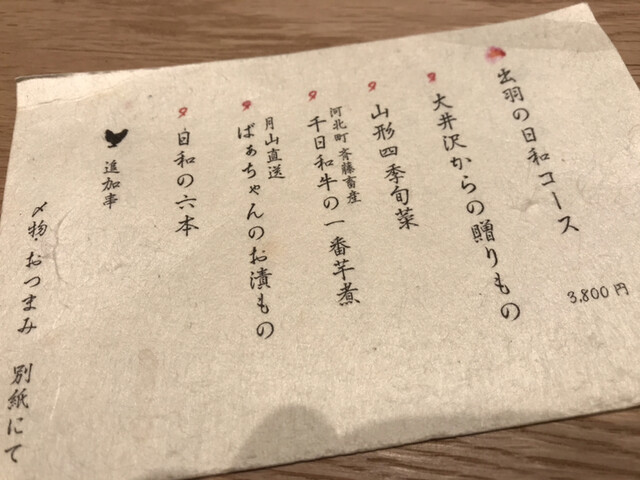 出羽の日和コース
3,800円
大井沢からの贈りもの
山形四季旬菜
河北町 斉藤畜産
千日和牛の一番芋煮
月山直送
ばぁちゃんのお漬もの
日和の六本
追加事
〆物・おつまみ 別紙にて